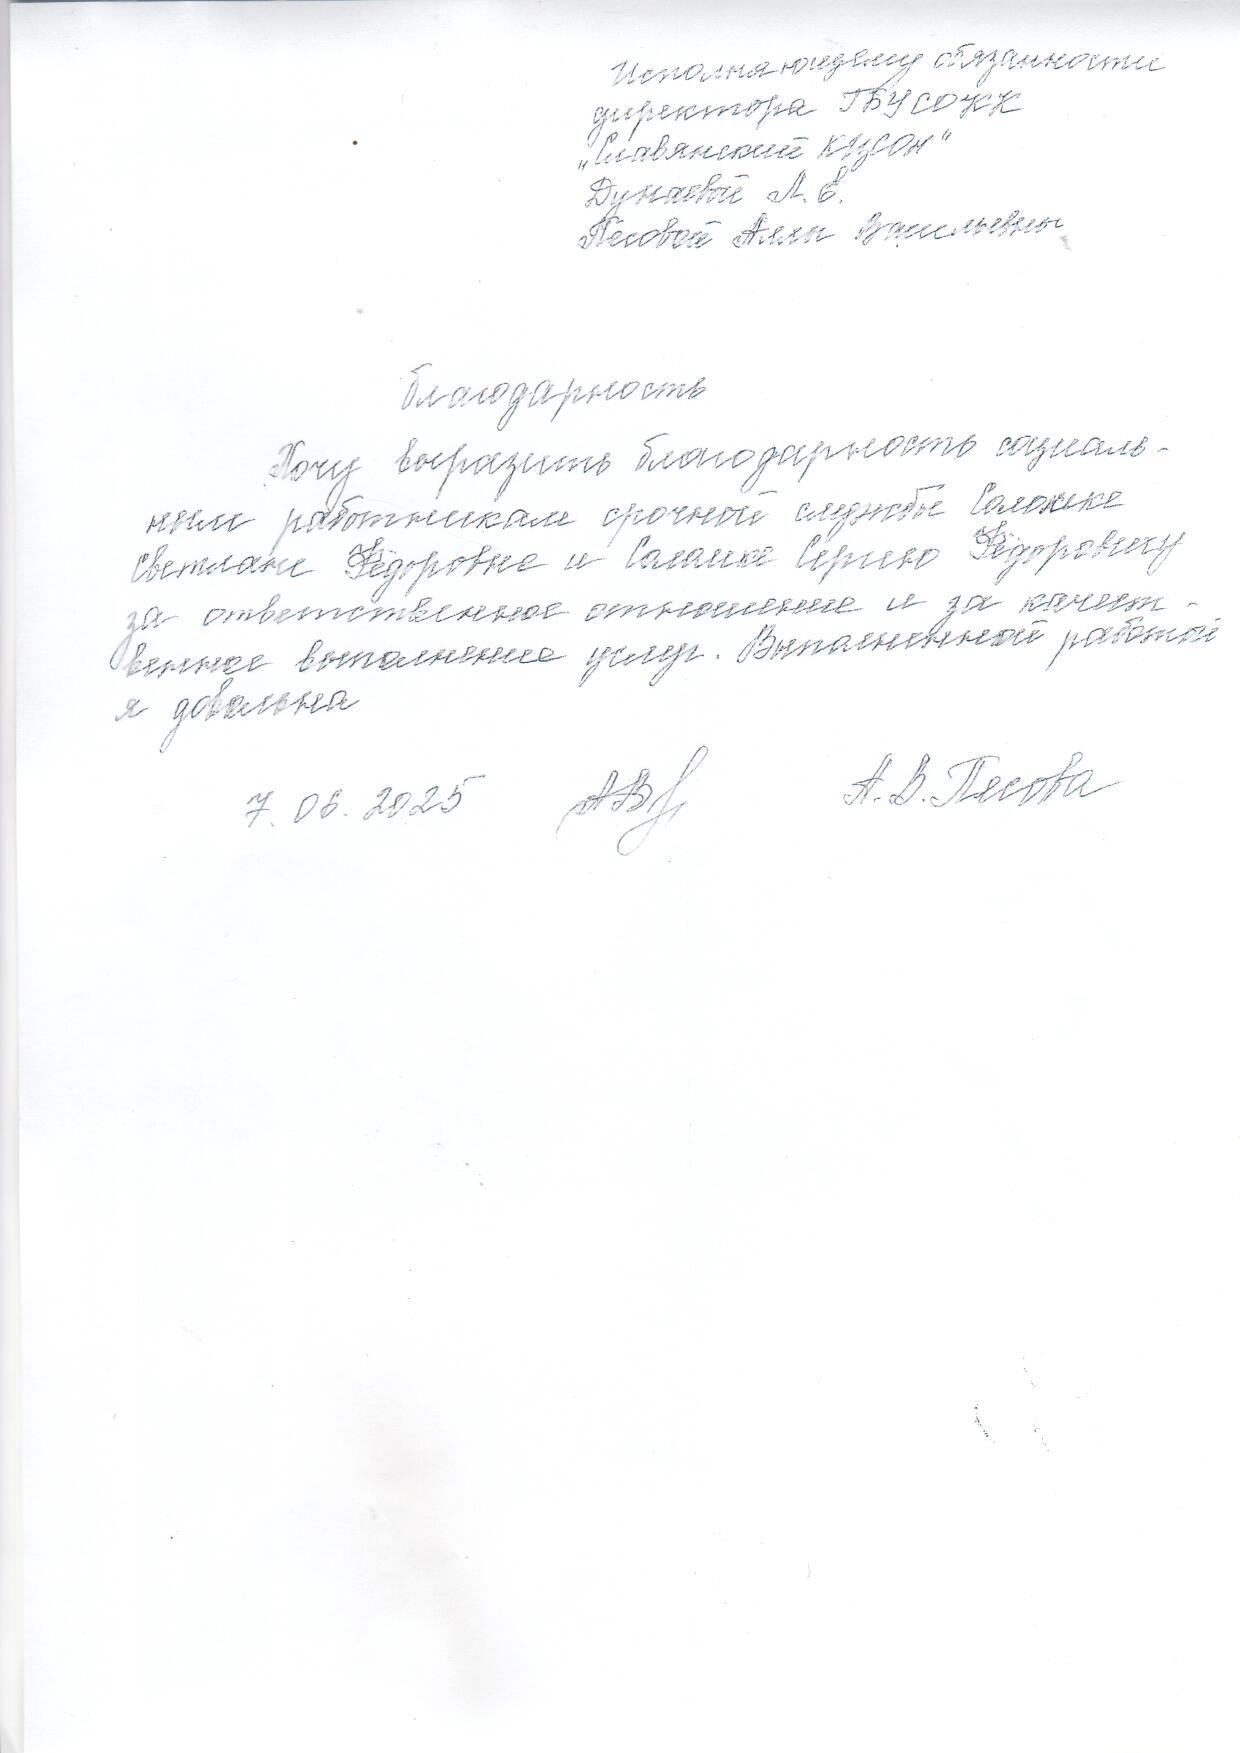 Исполняющему обязанности
директора ГБУСОКК
„Славянский КЦСОН"
Дунаевой Л. Е.
Песовой Аллы Васильевны
благодарность
Хочу выразить благодарность социаль-
ным работникам срочной службы Соломке
Светлане Фёдоровне и Соломке Сергею Фёдоровичу
за ответственное отношение и за качест-
венное выполнение услуг. Выполненной работой
я довольна
7. 06. 2025 А. В. Песова